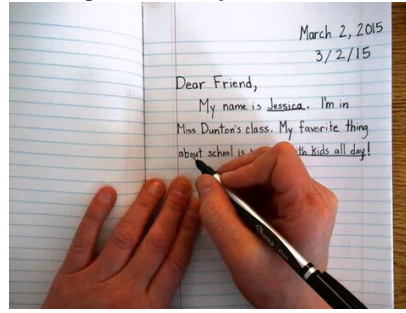 March 2, 2015
3/2/15
Dear Friend,
My name is Jessica. I'm in
Miss Dunton's class. My favorite thing
about school is kids all day!